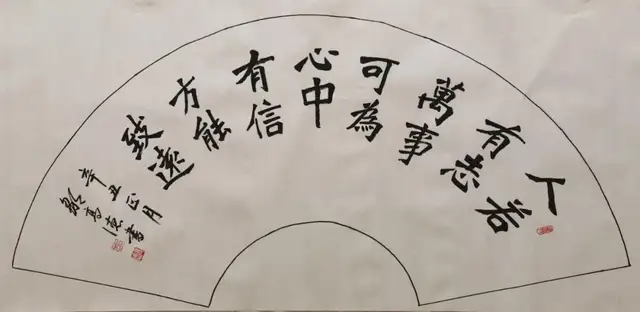 人若
有志
萬事
可為
心中
有信
方能
致遠
辛丑正月
高書